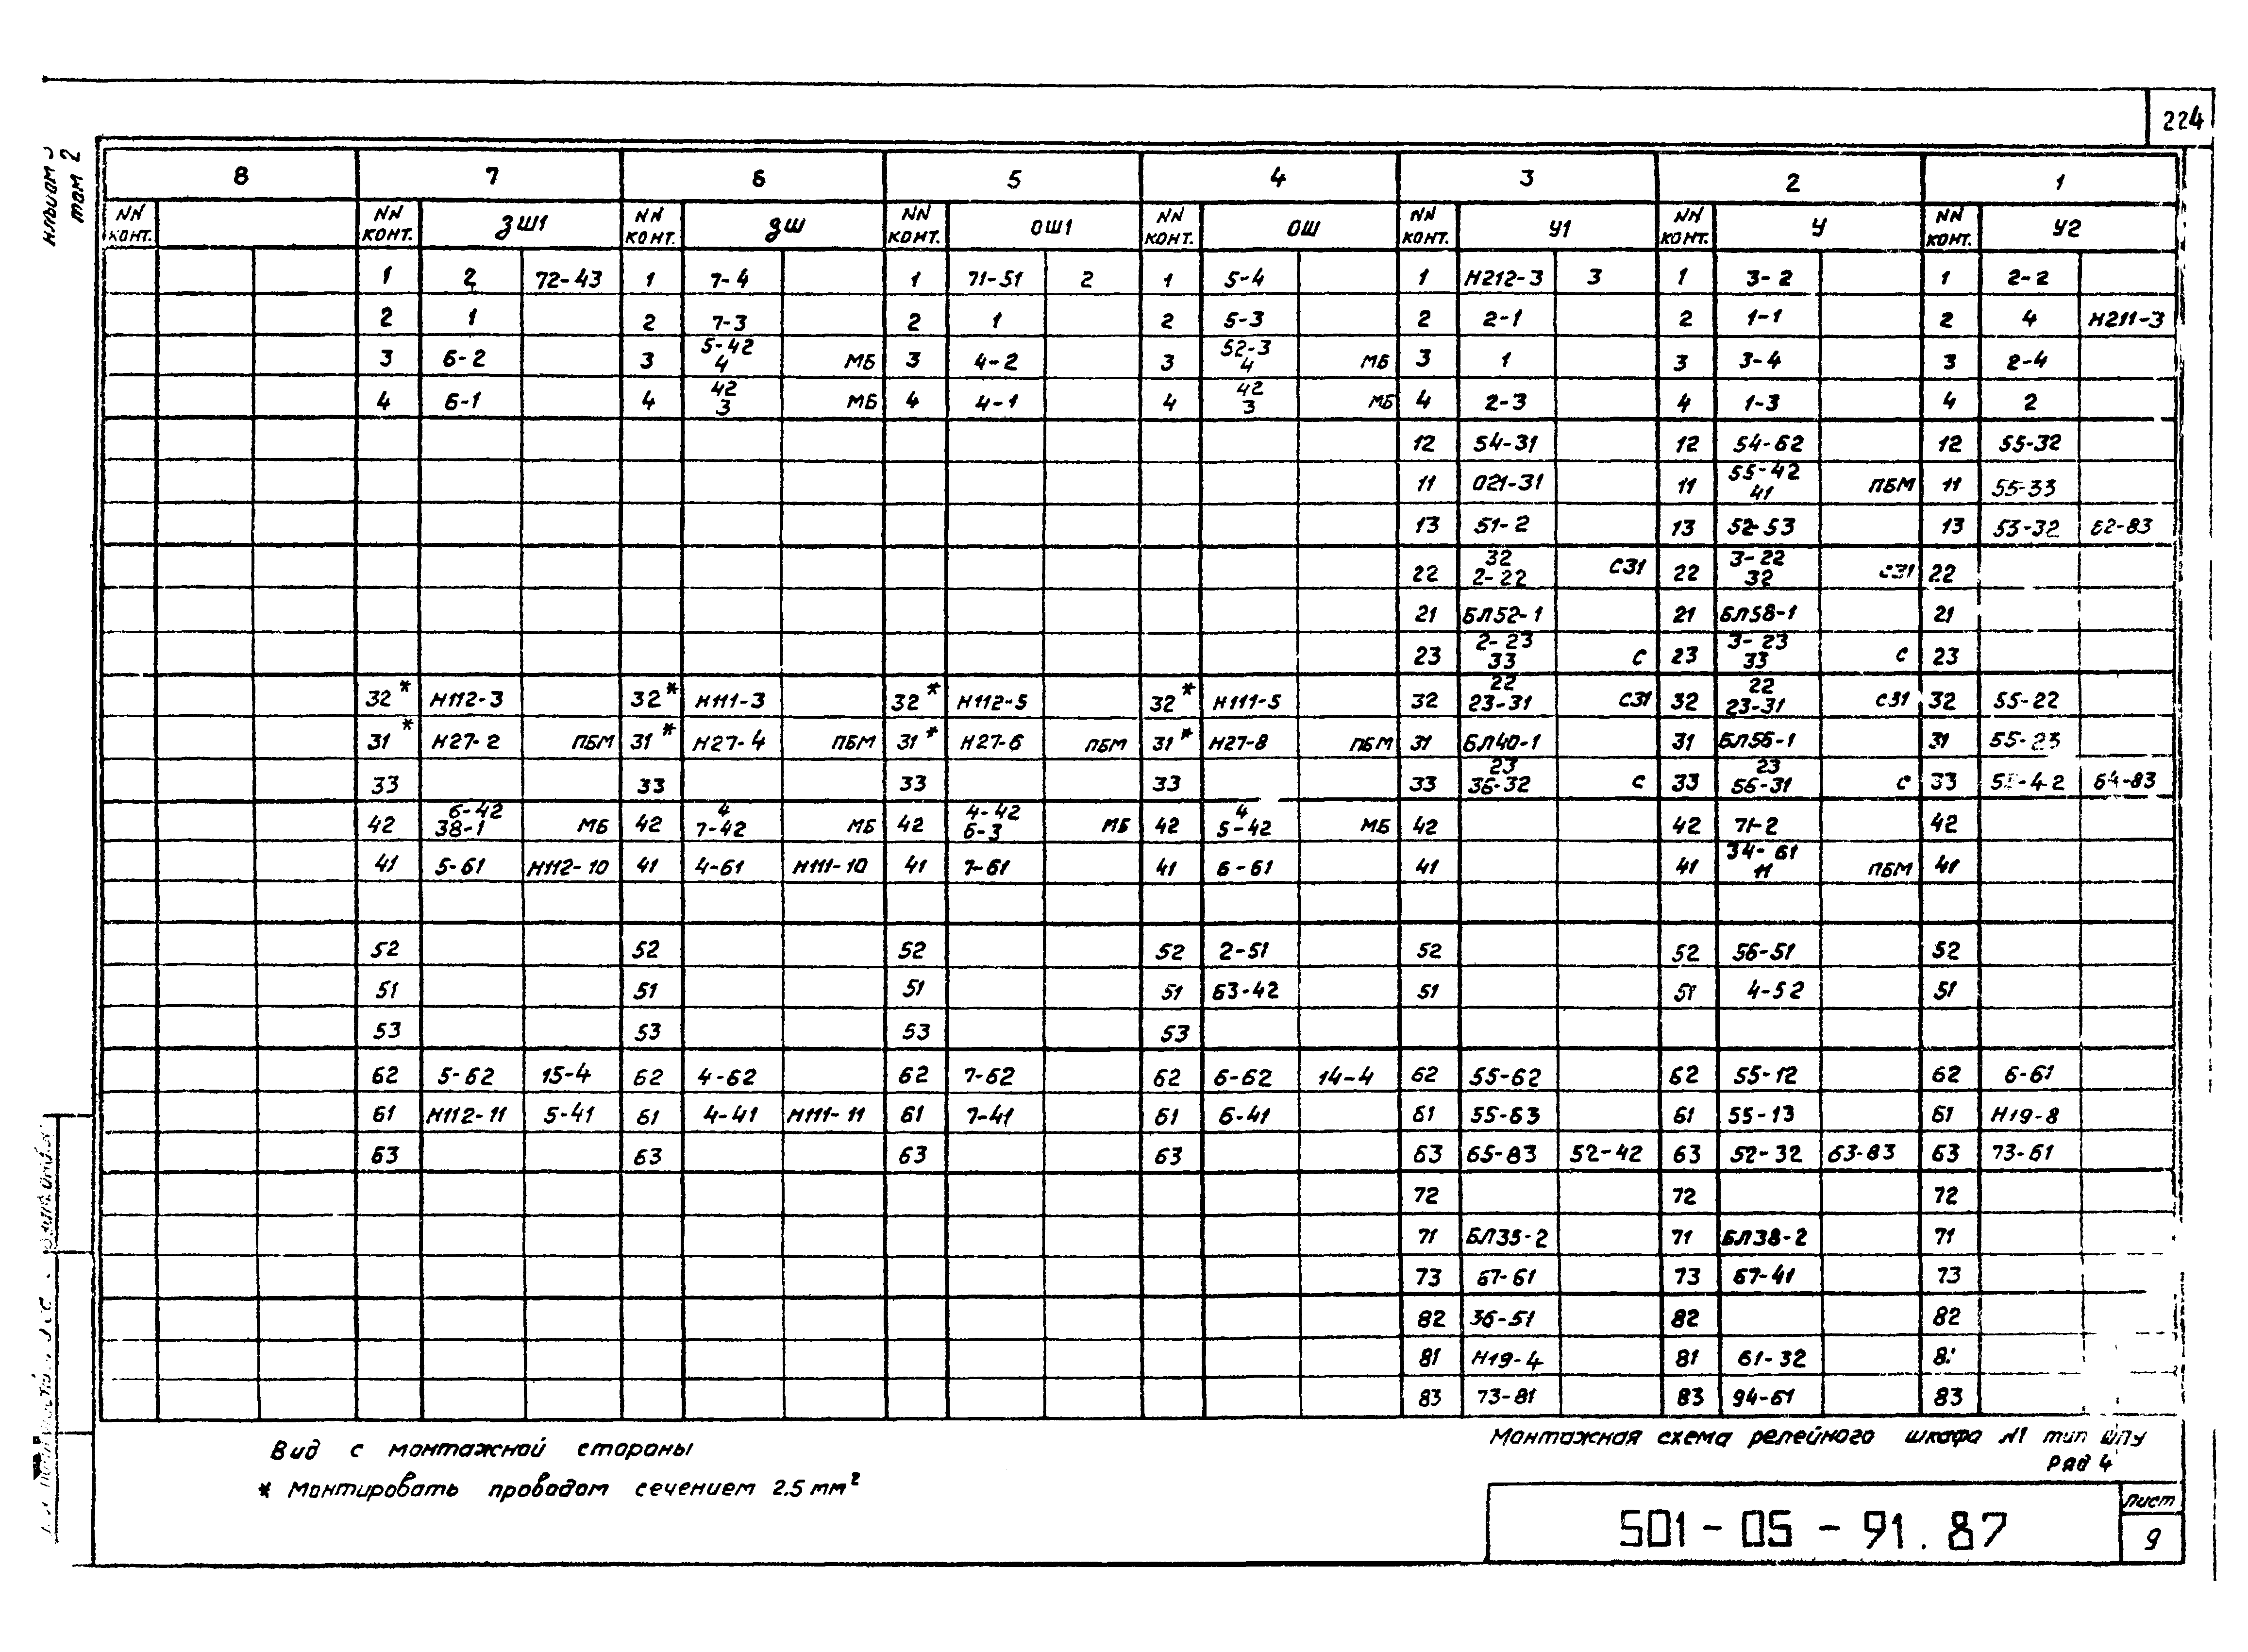 224
том 2
8 7 6 5 4 3 2 1
NN КОНТ. NN КОНТ. ЗШ1 NN КОНТ. ЗШ NN КОНТ. ОШ1 NN КОНТ. ОШ NN КОНТ. У1 NN КОНТ. У NN КОНТ. У2
1 2 72-43 1 7-4 1 71-51 2 1 5-4 1 Н212-3 3 1 3-2 1 2-2
2 1 2 7-3 2 1 2 5-3 2 2-1 2 1-1 2 4 Н211-3
3 6-2 3 5-42 4 МБ 3 4-2 3 52-3 4 МБ 3 1 3 3-4 3 2-4
4 6-1 4 42 3 МБ 4 4-1 4 42 3 МБ 4 2-3 4 1-3 4 2
12 54-31 12 54-62 12 55-32
11 021-31 11 55-42 41 ПБМ 11 55-33
13 51-2 13 52-53 13 53-32 62-83
22 32 2-22 СЗ1 22 3-22 32 СЗ1 22
21 БЛ52-1 21 БЛ58-1 21
23 2-23 33 С 23 3-23 33 С 23
32* Н112-3 32* Н111-3 32* Н112-5 32* Н111-5 32 22 23-31 СЗ1 32 22 23-31 СЗ1 32 55-22
31* Н27-2 ПБМ 31* Н27-4 ПБМ 31* Н27-6 ПБМ 31* Н27-8 ПБМ 31 БЛ40-1 31 БЛ56-1 31 55-23
33 33 33 33 33 23 36-32 С 33 23 56-31 С 33 64-83
42 6-42 38-1 МБ 42 4 7-42 МБ 42 4-42 6-3 МБ 42 4 5-42 МБ 42 42 71-2 42
41 5-61 Н112-10 41 4-61 Н111-10 41 7-61 41 6-61 41 41 34-61 11 ПБМ 41
52 52 52 52 2-51 52 52 56-51 52
51 51 51 51 63-42 51 51 4-52 51
53 53 53 53
62 5-62 15-4 62 4-62 62 7-62 62 6-62 14-4 62 55-62 62 55-12 62 6-61
61 Н112-11 5-41 61 4-41 Н111-11 61 7-41 61 6-41 61 55-63 61 55-13 61 Н19-8
63 63 63 63 63 65-83 52-42 63 52-32 63-83 63 73-61
72 72 72
71 БЛ35-2 71 БЛ38-2 71
73 67-61 73 67-41 73
82 36-51 82 82
81 Н19-4 81 61-32
83 73-81 83 94-61 83
Вид с монтажной стороны
* Монтировать проводом сечением 2.5 мм²
Монтажная схема релейного шкафа N1 тип ШПУ
Ряд 4
501-05-91.87
Лист
9